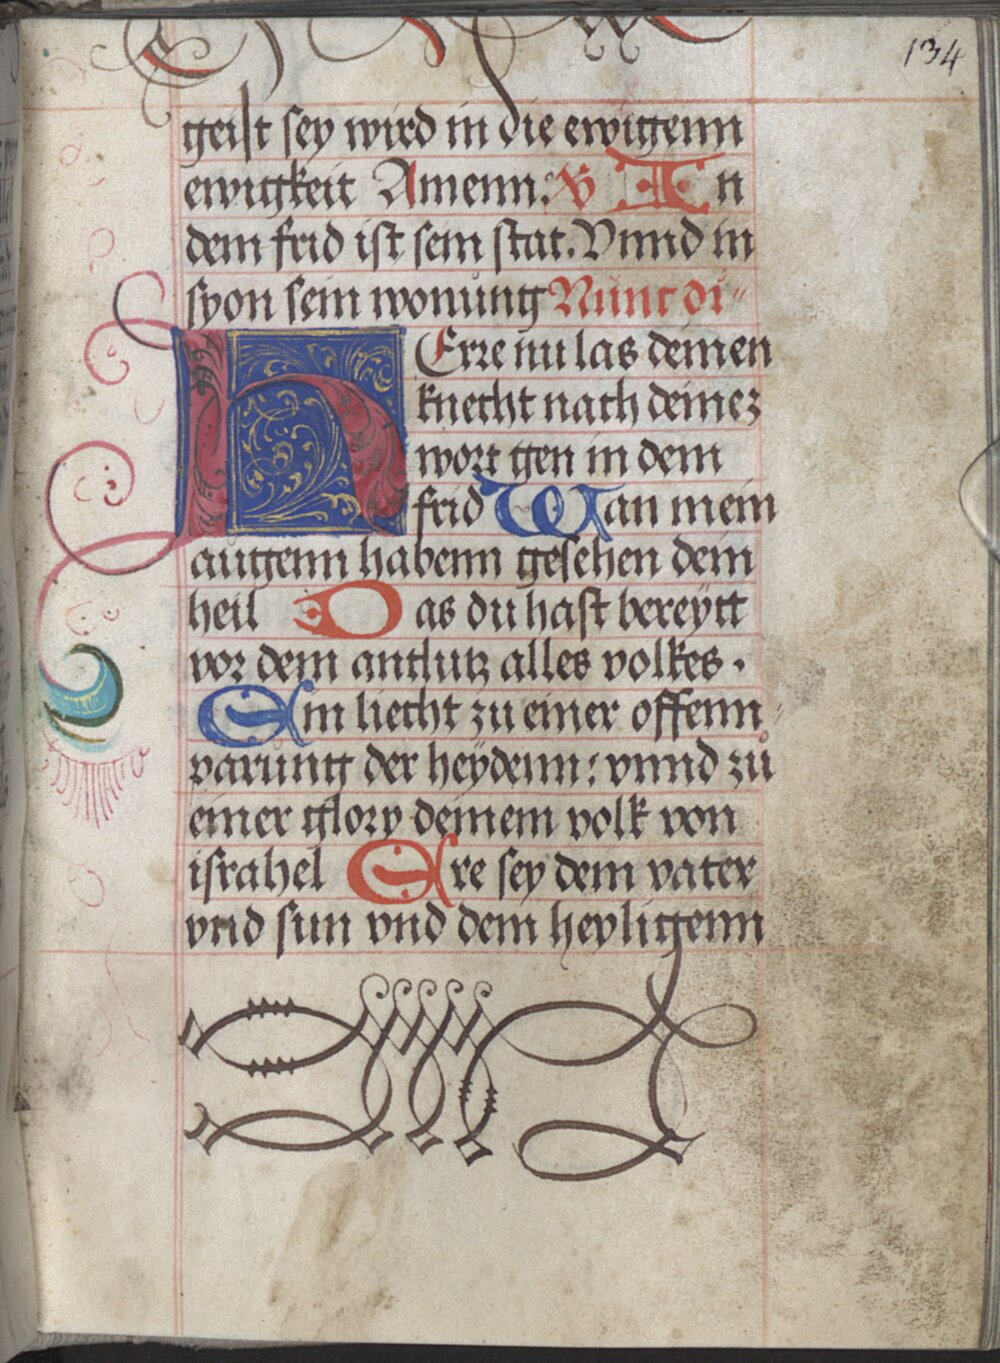 134
geist sey wird in die ewigenn
ewigkeit Amenn. In
dem frid ist sein stat. Vnnd in
syon sein wonung Nunc di
HErre nu las deinen
knecht nach deinez
wort gen in dem
frid Wan mein
augenn habenn gesehen dein
heil Das du hast bereytt
vor dem antlutz alles volkes.
Ein liecht zu einer offenn
varung der heydenn: vnnd zu
einer glory deinem volk von
israhel Ere sey dem vater
vnd sun vnd dem heyligenn